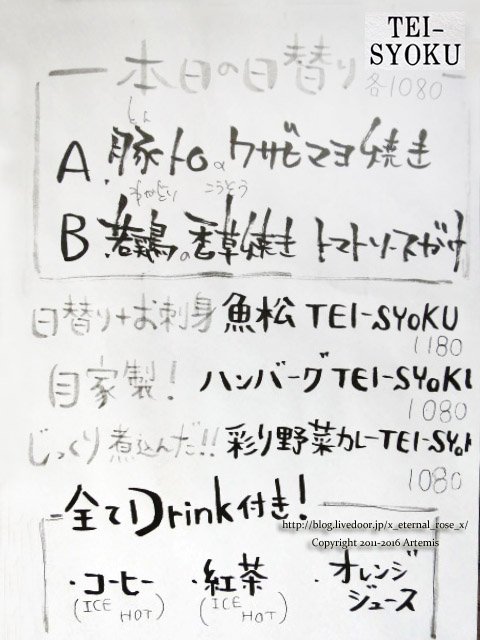 TEI-
SYOKU
本日の日替り
各1080
とん
A. 豚トロのワサビマヨ焼き
わかどり こうそう
B. 若鶏の香草焼き トマトソースがけ
日替り+お刺身 魚松 TEI-SYOKU
1180
自家製! ハンバーグ TEI-SYOKU
1080
じっくり煮込んだ!! 彩り野菜カレーTEI-SYOK
1080
全てDrink付き!
http://blog.livedoor.jp/x_eternal_rose_x/
Copyright 2011-2016 Artemis
・コーヒー ・紅茶 ・オレンジ
(ICE HOT) (ICE HOT) ジュース